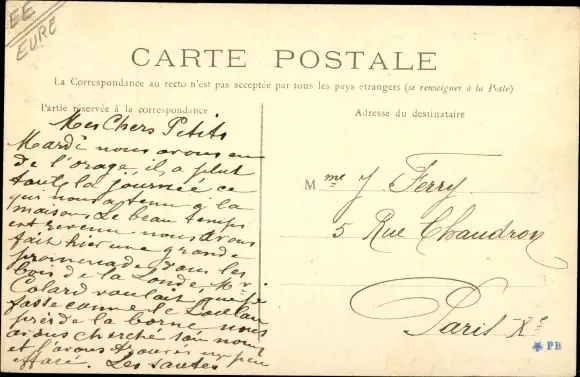 EE
EURE
CARTE POSTALE
La Correspondance au recto n'est pas acceptée par tous les pays étrangers (se renseigner à la Poste)
Partie réservée à la correspondance
Mes Chers Petits
Mardi nous avons eu
de l'orage, il a plut
toute la journée ce
qui nous a tenu a la
maison. Le beau temps
est revenu nous avons
fait hier une grande
promenade dans les
bois de la Londe, Mr.
Colard voulait que je
fasse comme le
près de la borne nous
avons cherché son nom
et l'avons trouvé un peu
effacé. Les
Adresse du destinataire
Mme J Ferry
5 Rue Chaudron
Paris Xe
PB